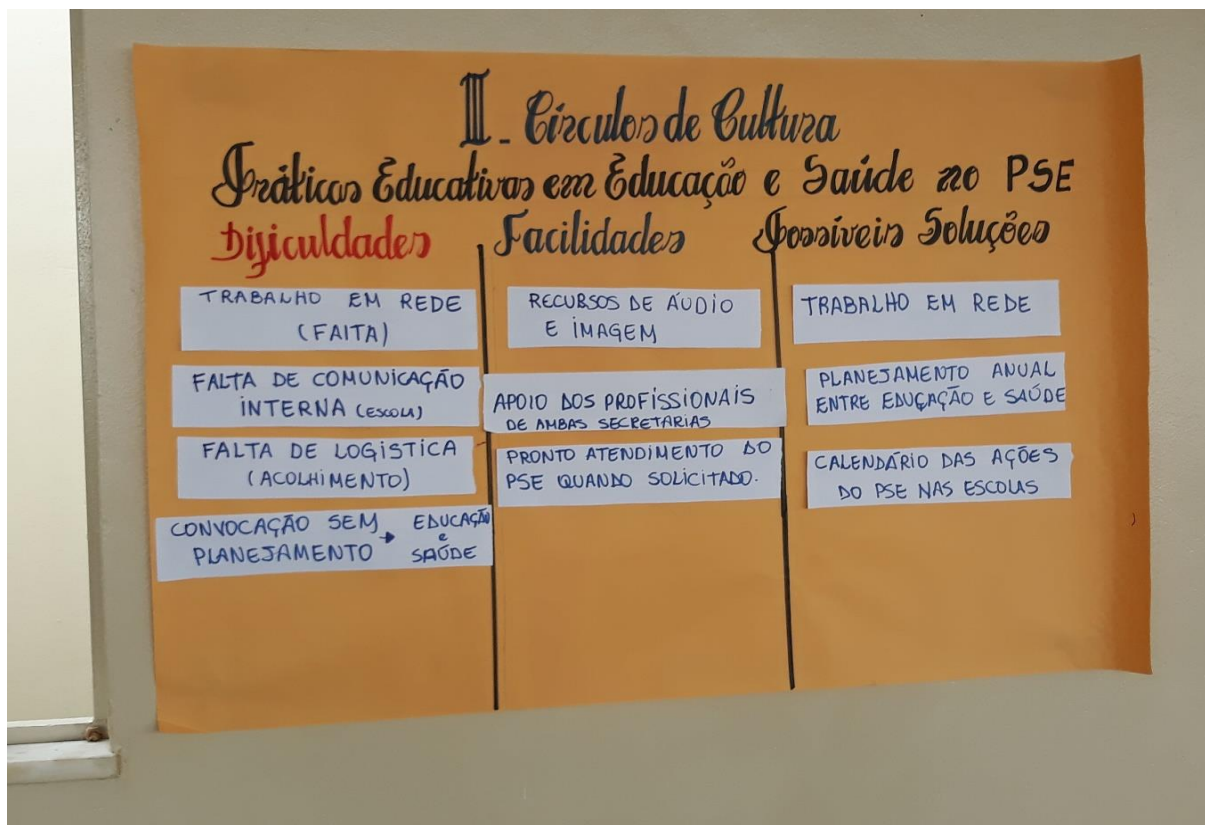 III - Círculos de Cultura
Práticas Educativas em Educação e Saúde no PSE
Dificuldades
TRABALHO EM REDE
(FAITA)
FALTA DE COMUNICAÇÃO
INTERNA (ESCOLA)
FALTA DE LOGISTICA
(ACOLHIMENTO)
CONVOCAÇÃO SEM → EDUCAÇÃO
PLANEJAMENTO e SAÚDE
Facilidades
RECURSOS DE ÁUDIO
E IMAGEM
APOIO DOS PROFISSIONAIS
DE AMBAS SECRETARIAS
PRONTO ATENDIMENTO DO
PSE QUANDO SOLICITADO.
Possíveis Soluções
TRABALHO EM REDE
PLANEJAMENTO ANUAL
ENTRE EDUÇAÇÃO E SAÚDE
CALENDÁRIO DAS AÇÕES
DO PSE NAS ESCOLAS